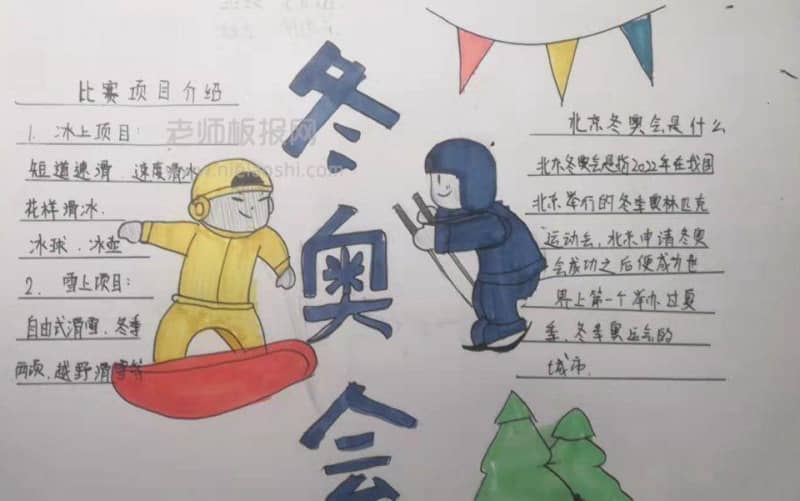 冬奥会
比赛项目介绍
1. 冰上项目:
短道速滑、速度滑冰
花样滑冰.
冰球、冰壶
2. 雪上项目:
自由式滑雪、冬季
两项、越野滑雪等
北京冬奥会是什么
北京冬奥会是指2022年在我国
北京举行的冬季奥林匹克
运动会,北京申请冬奥
会成功之后便成为世
界上第一个举办过夏
季、冬季奥运会的
城市.
老师板报网